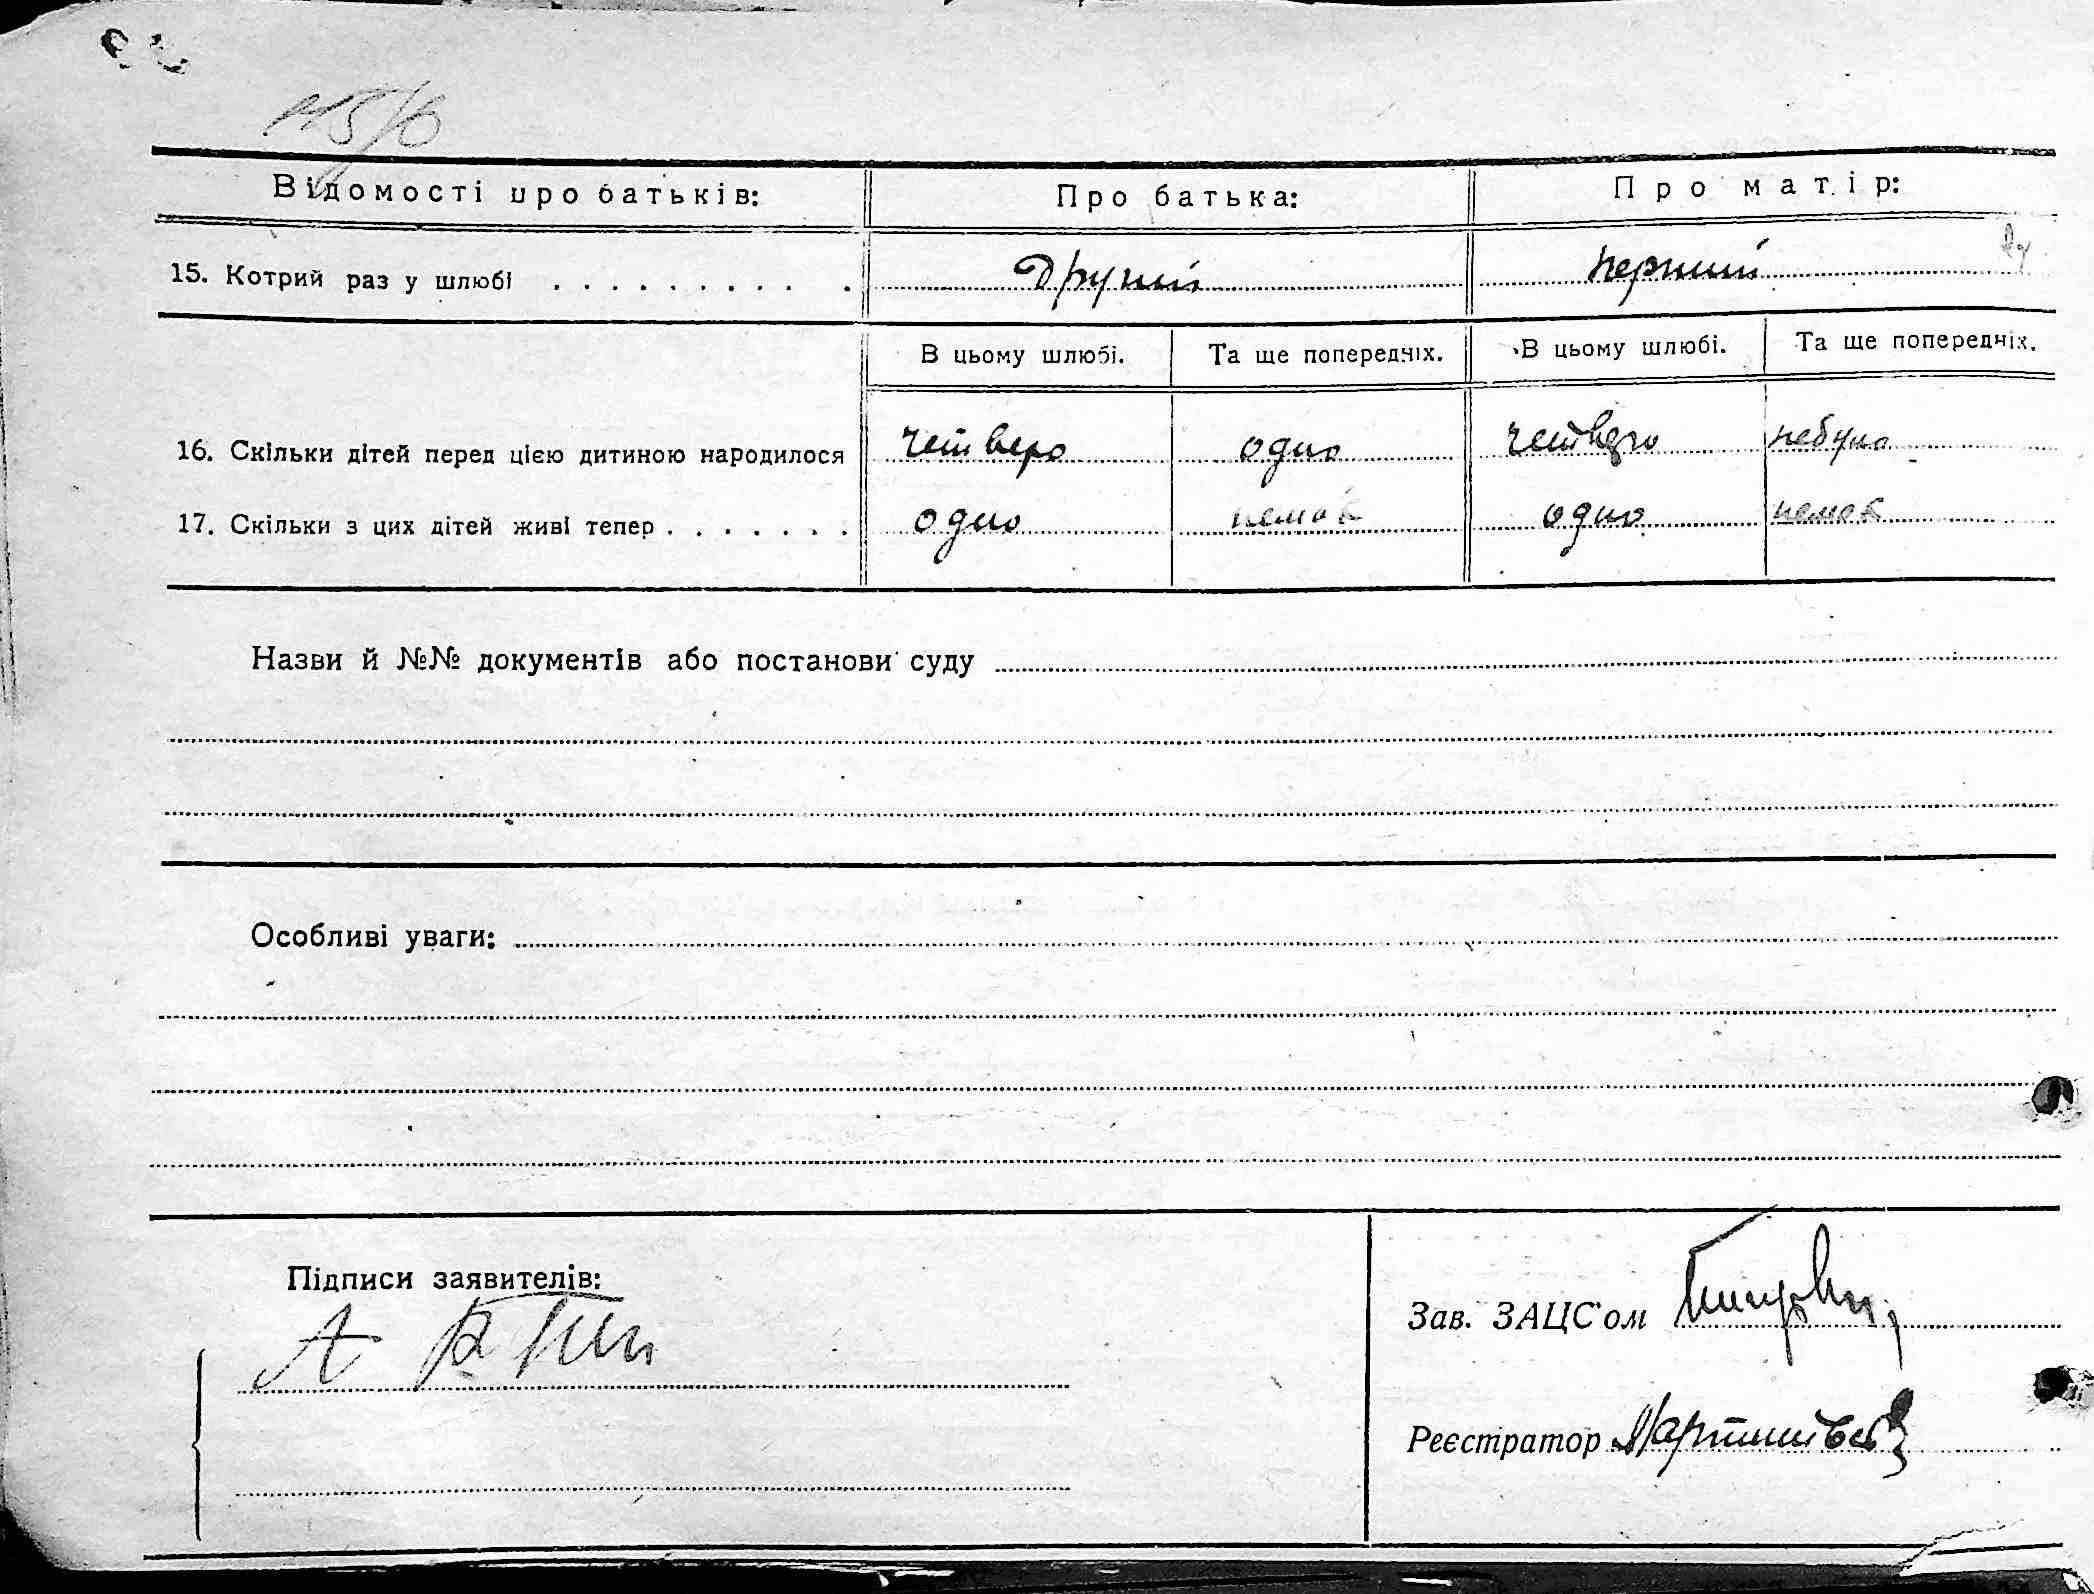 Відомості про батьків: Про батька: Про матір:
15. Котрий раз у шлюбі . . . . . . . . . . Другий перший
В цьому шлюбі. Та ще попередніх. В цьому шлюбі. Та ще попередніх.
16. Скільки дітей перед цією дитиною народилося четверо одно четверо небуло
17. Скільки з цих дітей живі тепер . . . . . . . одно немає одно немає
Назви й №№ документів або постанови суду
Особливі уваги:
Підписи заявителів:
Зав. ЗАЦС'ом
Реєстратор